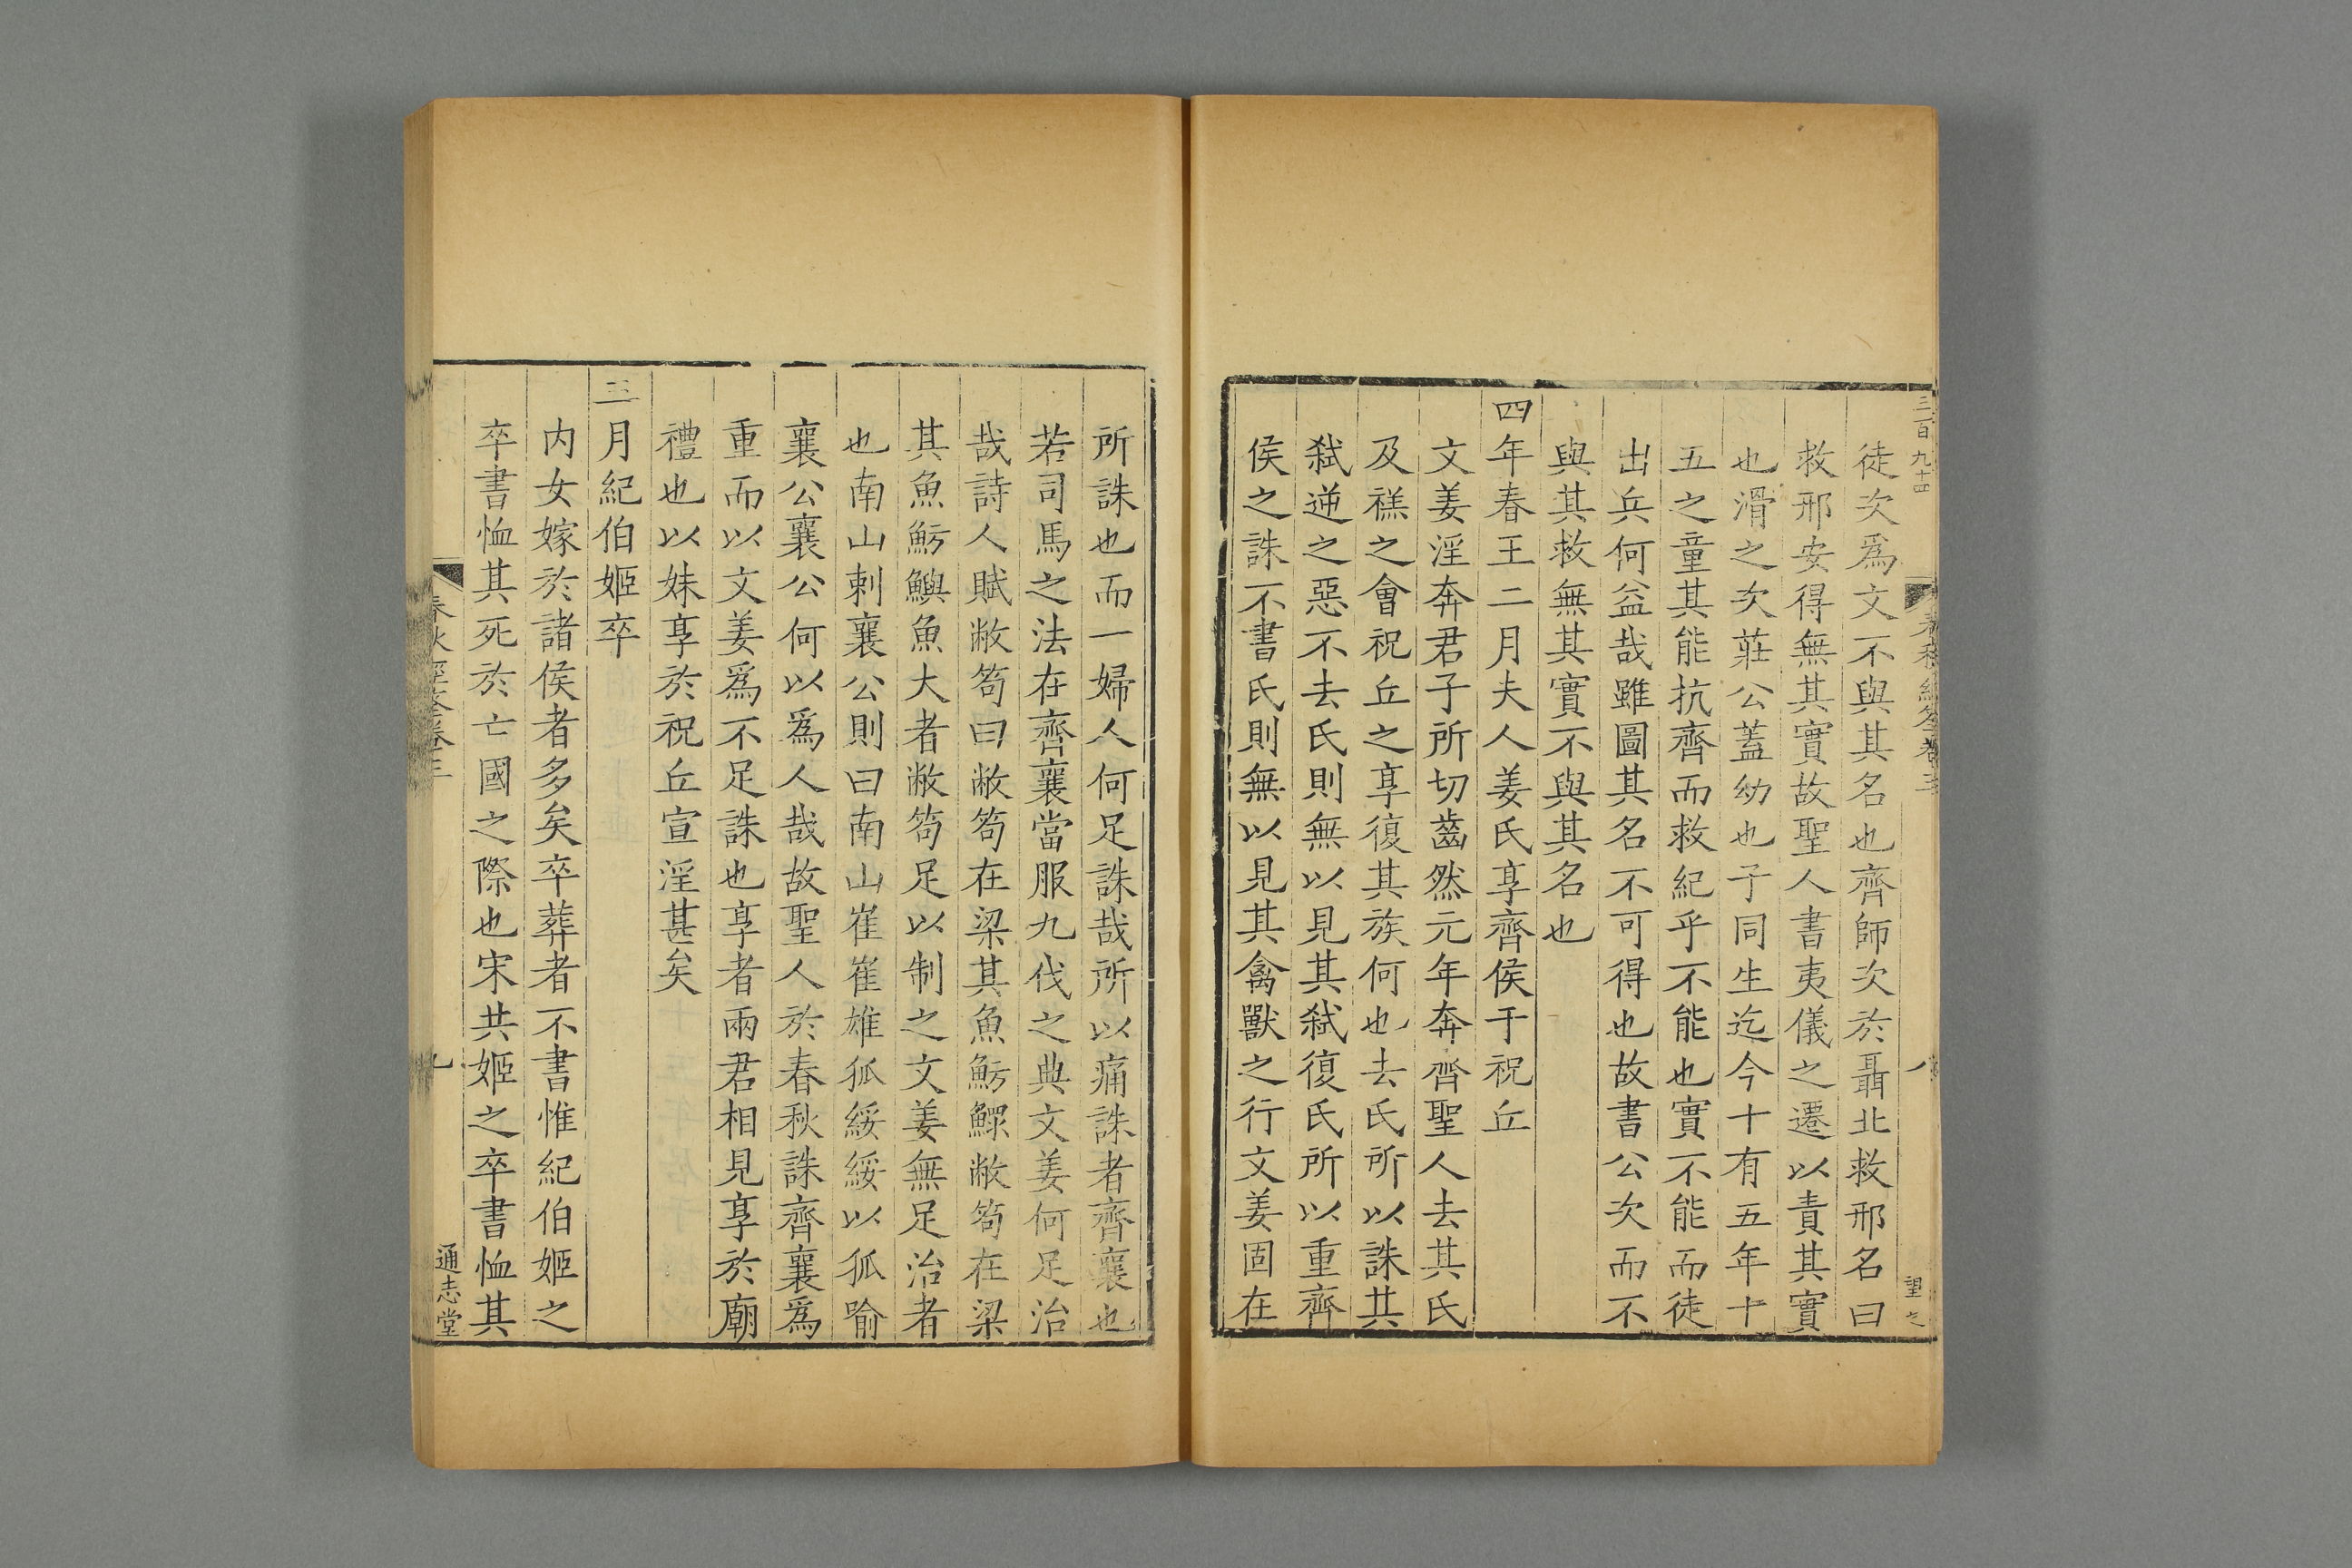 三百九十四
春秋經筌卷三
八
望之
徒次爲文不與其名也齊師次於聶北救邢名曰
救邢安得無其實故聖人書夷儀之遷以責其實
也滑之次莊公蓋幼也子同生迄今十有五年十
五之童其能抗齊而救紀乎不能也實不能而徒
出兵何益哉雖圖其名不可得也故書公次而不
與其救無其實不與其名也
四年春王二月夫人姜氏享齊侯于祝丘
文姜淫奔君子所切齒然元年奔齊聖人去其氏
及禚之會祝丘之享復其族何也去氏所以誅其
弑逆之惡不去氏則無以見其弑復氏所以重齊
侯之誅不書氏則無以見其禽獸之行文姜固在
所誅也而一婦人何足誅哉所以痛誅者齊襄也
若司馬之法在齊襄當服九伐之典文姜何足治
哉詩人賦敝笱曰敝笱在梁其魚魴鰥敝笱在梁
其魚魴鱮魚大者敝笱足以制之文姜無足治者
也南山刺襄公則曰南山崔崔雄狐綏綏以狐喻
襄公襄公何以爲人哉故聖人於春秋誅齊襄爲
重而以文姜爲不足誅也享者兩君相見享於廟
禮也以妹享於祝丘宣淫甚矣
三月紀伯姬卒
内女嫁於諸侯者多矣卒葬者不書惟紀伯姬之
卒書恤其死於亡國之際也宋共姬之卒書恤其
春秋經筌卷三
九
通志堂